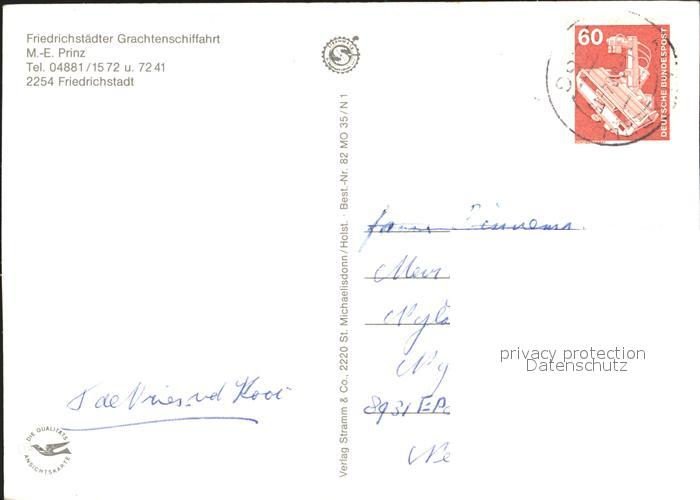 Friedrichstädter Grachtenschiffahrt
M.-E. Prinz
Tel. 04881/1572 u. 7241
2254 Friedrichstadt
S de Vries-vd Kooi
DIE QUALITÄTS
ANSICHTSKARTE
Verlag Stramm & Co., 2220 St. Michaelisdonn/Holst. · Best.-Nr. 82 MO 35/N1
60
DEUTSCHE BUNDESPOST
8931 EP
privacy protection
Datenschutz